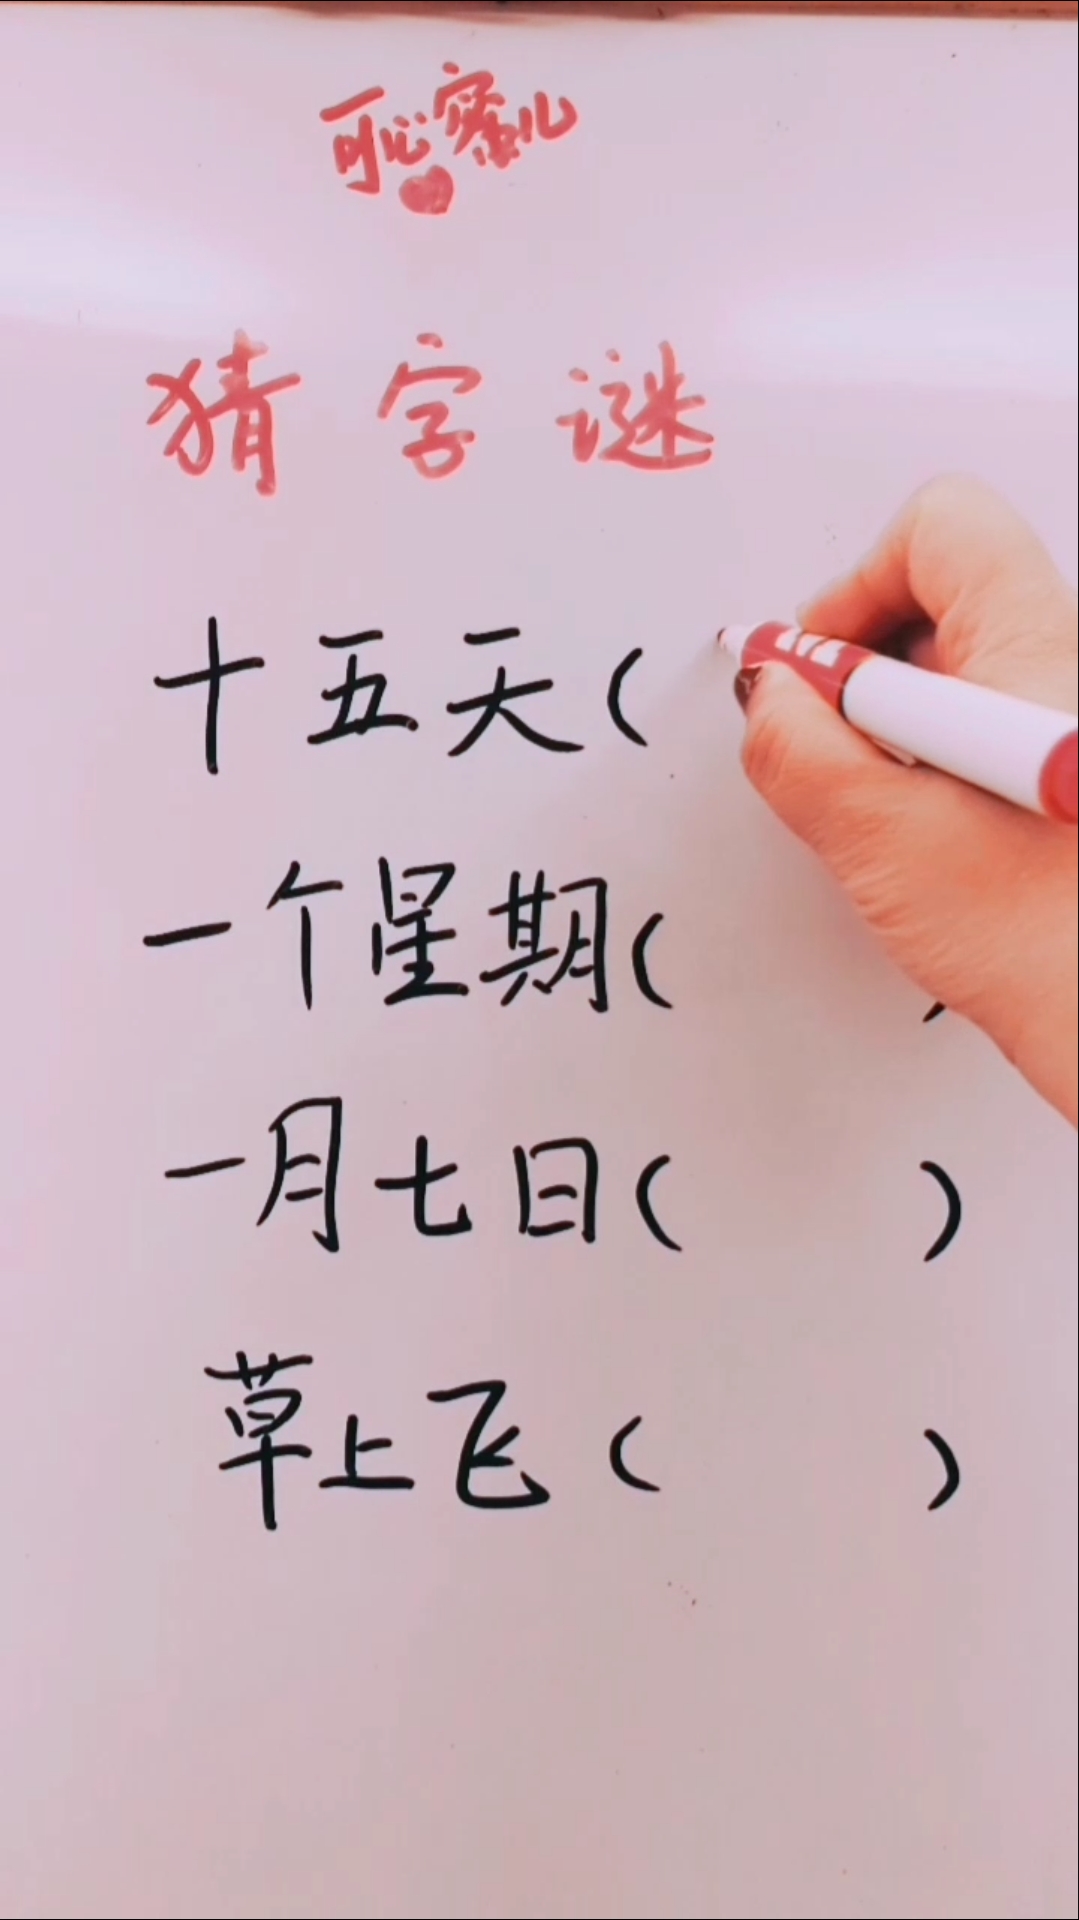 可心蜜儿
猜字谜
十五天(
一个星期( )
一月七日( )
草上飞( )